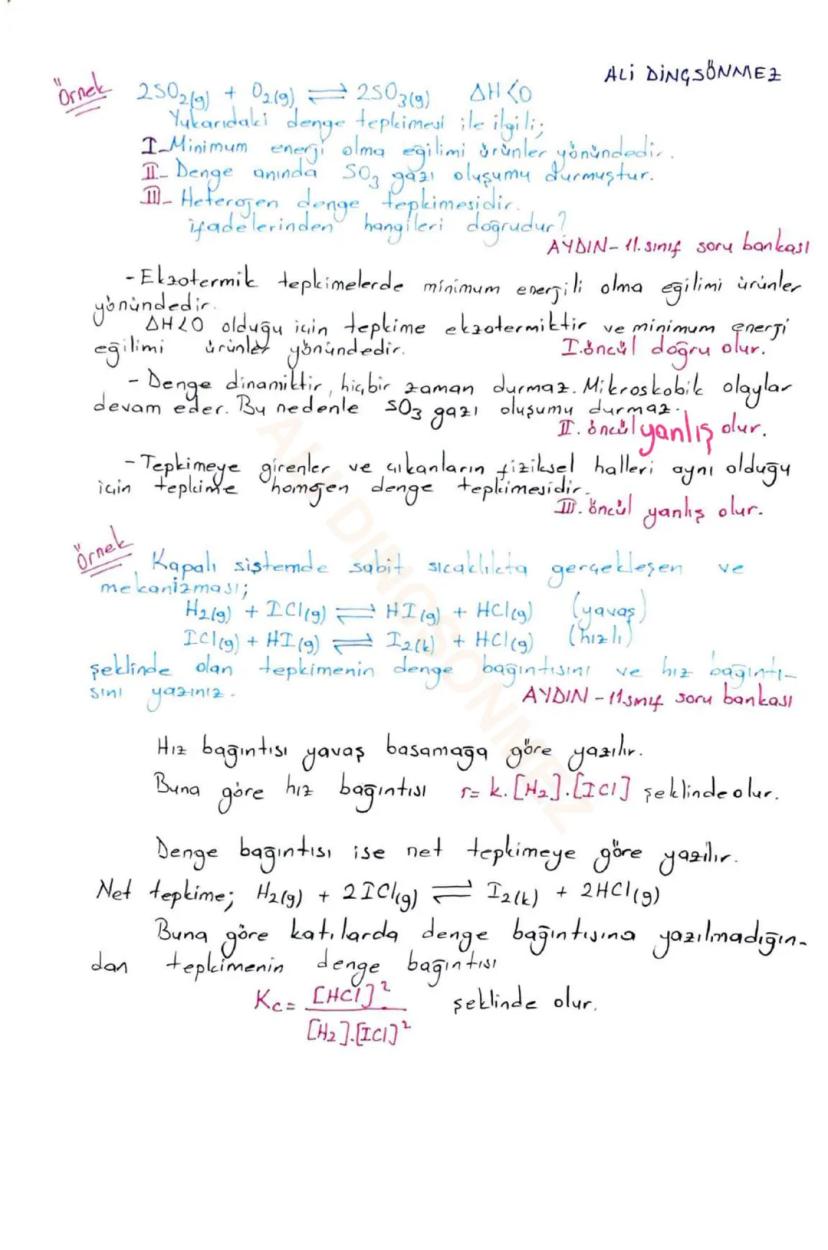 ALİ DİNÇSÖNMEZ
Örnek
2SO₂(g) + O₂(g) ⇌ 2SO₃(g) ΔH<0
Yukarıdaki denge tepkimesi ile ilgili;
I- Minimum enerji olma eğilimi ürünler yönündedir.
II- Denge anında SO₃ gazı oluşumu durmuştur.
III- Heterojen denge tepkimesidir.
ifadelerinden hangileri doğrudur?
AYDIN- 11. sınıf soru bankası
- Ekzotermik tepkimelerde minimum enerjili olma eğilimi ürünler
yönündedir.
ΔH<0 olduğu için tepkime ekzotermiktir ve minimum enerji
eğilimi ürünler yönündedir. I. öncül doğru olur.
- Denge dinamiktir, hiçbir zaman durmaz. Mikroskobik olaylar
devam eder. Bu nedenle SO₃ gazı oluşumu durmaz.
II. öncül yanlış olur.
- Tepkimeye girenler ve çıkanların fiziksel halleri aynı olduğu
için tepkime homojen denge tepkimesidir.
III. öncül yanlış olur.
Örnek
Kapalı sistemde sabit sıcaklıkta gerçekleşen ve
mekanizması;
H₂(g) + ICl(g) ⇌ HI(g) + HCl(g) (yavaş)
ICl(g) + HI(g) ⇌ I₂(k) + HCl(g) (hızlı)
şeklinde olan tepkimenin denge bağıntısını ve hız bağıntı-
sını yazınız. AYDIN - 11.sınıf soru bankası
Hız bağıntısı yavaş basamağa göre yazılır.
Buna göre hız bağıntısı r= k.[H₂].[ICl] şeklinde olur.
Denge bağıntısı ise net tepkimeye göre yazılır.
Net tepkime; H₂(g) + 2ICl(g) ⇌ I₂(k) + 2HCl(g)
Buna göre katılarda denge bağıntısına yazılmadığın-
dan tepkimenin denge bağıntısı
Kc= [HCl]² / [H₂].[ICl]² şeklinde olur.
ALİ DİNÇSÖNMEZ